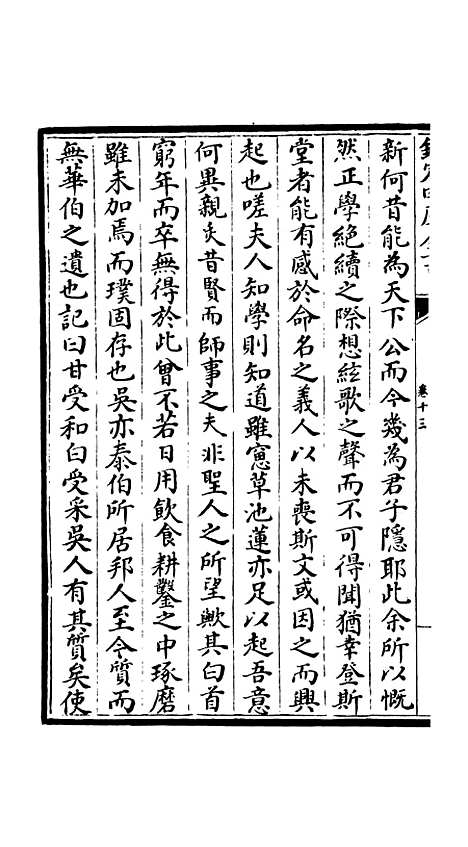 卷十三
新何昔能為天下公而今幾為君子隱耶此余所以慨
然正學絕續之際想絃歌之聲而不可得聞猶幸登斯
堂者能有感於命名之義人以未喪斯文或因之而興
起也嗟夫人知學則知道雖窻草池蓮亦足以起吾意
何異親炙昔賢而師事之夫非聖人之所望歟其白首
窮年而卒無得於此曾不若日用飲食耕鑿之中琢磨
雖未加焉而璞固存也吳亦泰伯所居邦人至今質而
無華伯之遺也記曰甘受和白受采吳人有其質矣使